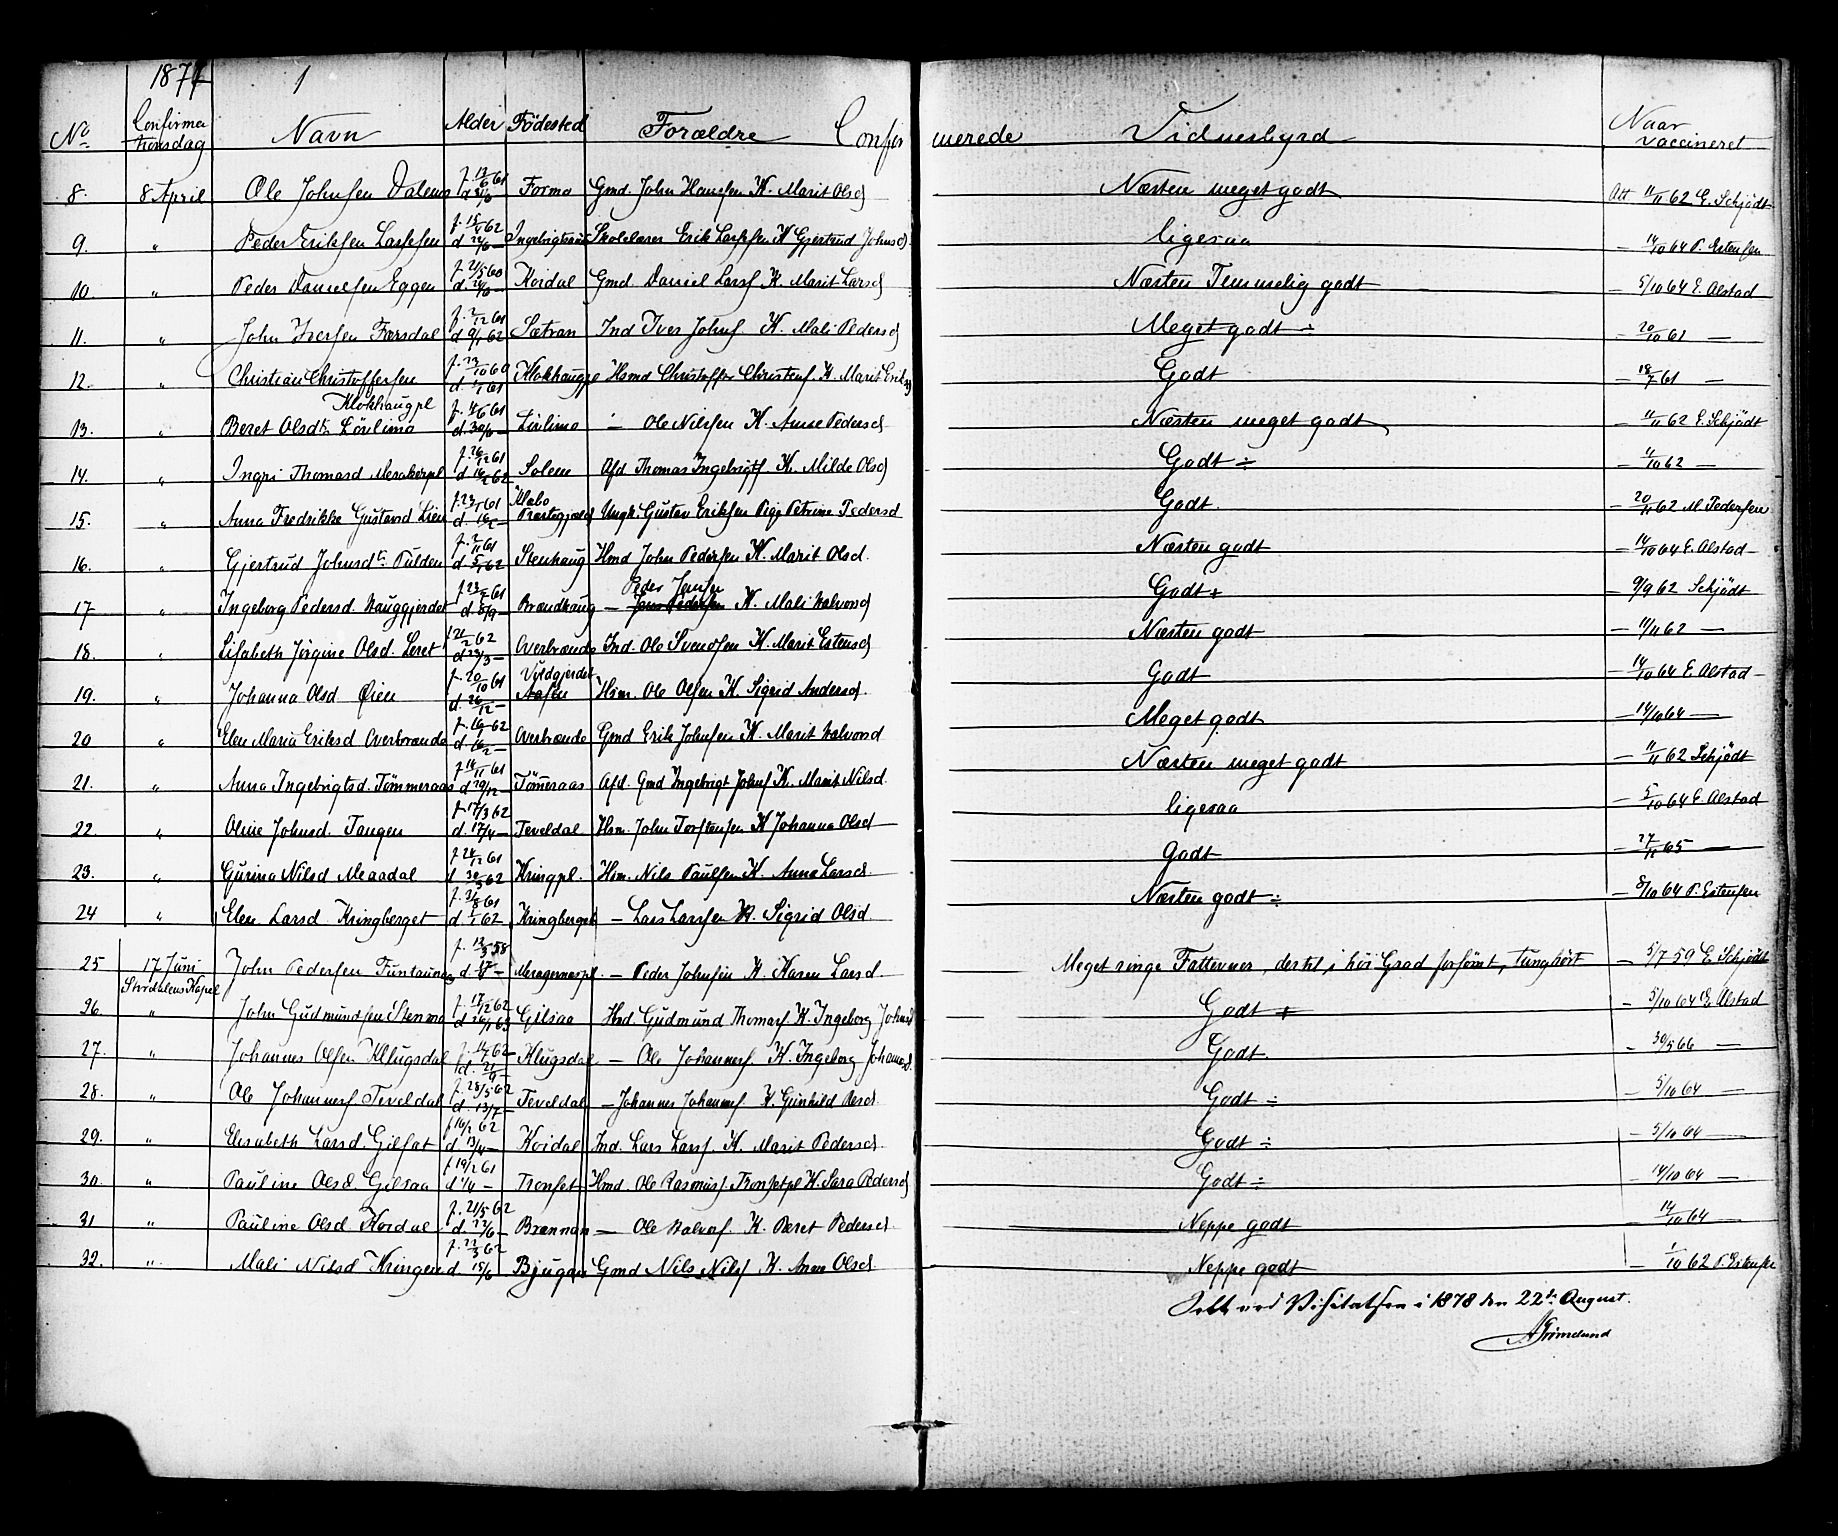 1877 1
No Confirmationsdag Navn Alder Födested Forældre Confirmerede Vidnesbyrd Naar vaccineret
8. 8 April Ole Johnsen Dalemo f. 61 Formo Gmd. John Hansen K. Marit Olsd Næsten meget godt Att 11/11 62 E. Schjödt
9. " Peder Eriksen Larssen f. 62 Skolelærer Erik Larssen K Gjertrud Johnsd ligesaa – 14/10 64 P. Estensen
10. " Peder Danielsen Eggen f. 21/5 60 Kordal Gmd. Daniel Larss K. Marit Larsd Næsten Temmelig godt – 5/10 64 E. Alstad
11. " John Iversen Færsdal f. 2/12 61 d 9/1 62 Sætran Ind Iver Johns. K. Mali Pedersd Meget godt ÷ – 20/10 61 –
12. " Christian Christoffersen Klokhaugpl f. 23/10 60 d 1/1 61 Klokhaugpl Hsmd Christoffer Christens. K. Marit Eriksd Godt – 18/7 61 –
13. " Beret Olsdtr Lövlimo f. 4/6 61 d. 30/6 – Lövlimo – Ole Nilssen K. Anne Pedersd Næsten meget godt – 11/11 62 E. Schjödt
14. " Ingri Thomasd Merakerpl f. 26/12 61 d 16/2 62 Solem Afd Thomas Ingebrigts K. Milde Olsd Godt ÷ – 11/10 62 –
15. " Anna Fredrikke Gustavsd Lien f. 23/1 61 Klæbo Præstegjæld Ungk. Gustav Eriksen Pige Petrine Pedersd Godt. – 20/11 62 M. Pedersen
16. " Gjertrud Johnsdtr Fulden f. 2/11 61 d. 5/1 62 Stenhaug Hmd John Pedersen K. Marit Olsd. Næsten godt – 14/10 64 E. Alstad –
17 " Ingeborg Pedersd. Hauggjerdet f. 61 d. 8/9 – Brændhaug – Peder Jensen Jens Pedersen K. Mali Halvorsd Godt + – 9/9 62 Schjödt
18. " Lisabeth Jørgine Olsd. Leret 62 Overbrænde Ind. Ole Svendsen K. Marit Estensd Næsten godt – 11/11 62 –
19. " Johanna Olsd Øien f. 20/10 61 d. 26/12 – Vildgjerdet Aasen Hsm. Ole Olsen K. Sigrid Andersd. Godt – 14/10 64 E. Alstad –
20 " Elen Maria Eriksd Overbrænde f. 16/1 62 d. 16/2 – Overbrænde Gmd Erik Johnsen K. Marit Halvorsd Meget godt – 14/10 64 –
21. " Anna Ingebrigtsd. Tömmeraas f. 14/11 61 d 29/12 Tömmeraas Afd. Gmd Ingebrigt Johns K. Marit Nilsd. Næsten meget godt – 11/11 62 Schjödt
22. " Oline Johnsd. Tangen f. 17/3 62 d. 17/4 – Teveldal Hsm. John Torstensen K Johanna Olsd ligesaa – 5/10 64 E. Alstad
23. " Gurina Nilsd Meaadal f. 24/12 61 d 30/3 62 Kringpl. Hsm. Nils Paulsen K. Anna Larsd. Godt – 27/11 65 –
24 " Elen Larsd Kringberget f. 31/8 61 d. 1/1 62 Kringberget – Lars Larssen K. Sigrid Olsd Næsten godt ÷ – 8/10 64 P. Estensen
25 17 Juni Stordalens Kapel John Pedersen Funtaunes f. 58 – Peder Johnsen K. Karen Larsd. Meget ringe Fatteevner, dertil i höi Grad forsömt, tunghört – 5/7 59 E. Schjödt
26. " John Gudmundsen Stenmo f. 17/12 62 d 26/1 63 Gilsaa Hsd. Gudmund Thomass K. Ingeborg Johnsd Godt + – 5/10 64 E. Alstad
27. " Johannes Olsen Klugsdal f. 14/7 62 d. 21/9 – Klugsdal – Ole Johanness. K. Ingeborg Johannesd. Godt. – 30/5 66 –
28. " Ole Johanness Teveldal f. 28/5 62 d. 13/7 – Teveldal – Johannes Johanness. K. Gunhild Olsd Godt ÷ – 5/10 64 –
29. " Elisabeth Larsd. Gilsat f 16/2 62 d 13/4 – Kordal Ind. Lars Larss. K. Marit Pedersd. Godt ÷ – 5/10 64
30. " Pauline Olsd. Gilsaa f 19/2 61 d 1/4 – Tronset Hmd. Ole Rasmuss. Tronsetpl K. Sara Pedersd Godt ÷ – 14/10 64 –
31 " Pauline Olsd Kordal f. 21/5 62 d. 22/6 – Brennan – Ole Halvors. K. Beret Pedersd Neppe godt – 14/10 64 –
32. " Mali Nilsd Kringen f. 22/3 62 d 15/6 Bjugan Gmd Nils Nilss K. Anne Olsd Neppe godt – 1/10 62 P. Estensen
Seet ved Visitatsen i 1878 den 22de August.
A Grimelund